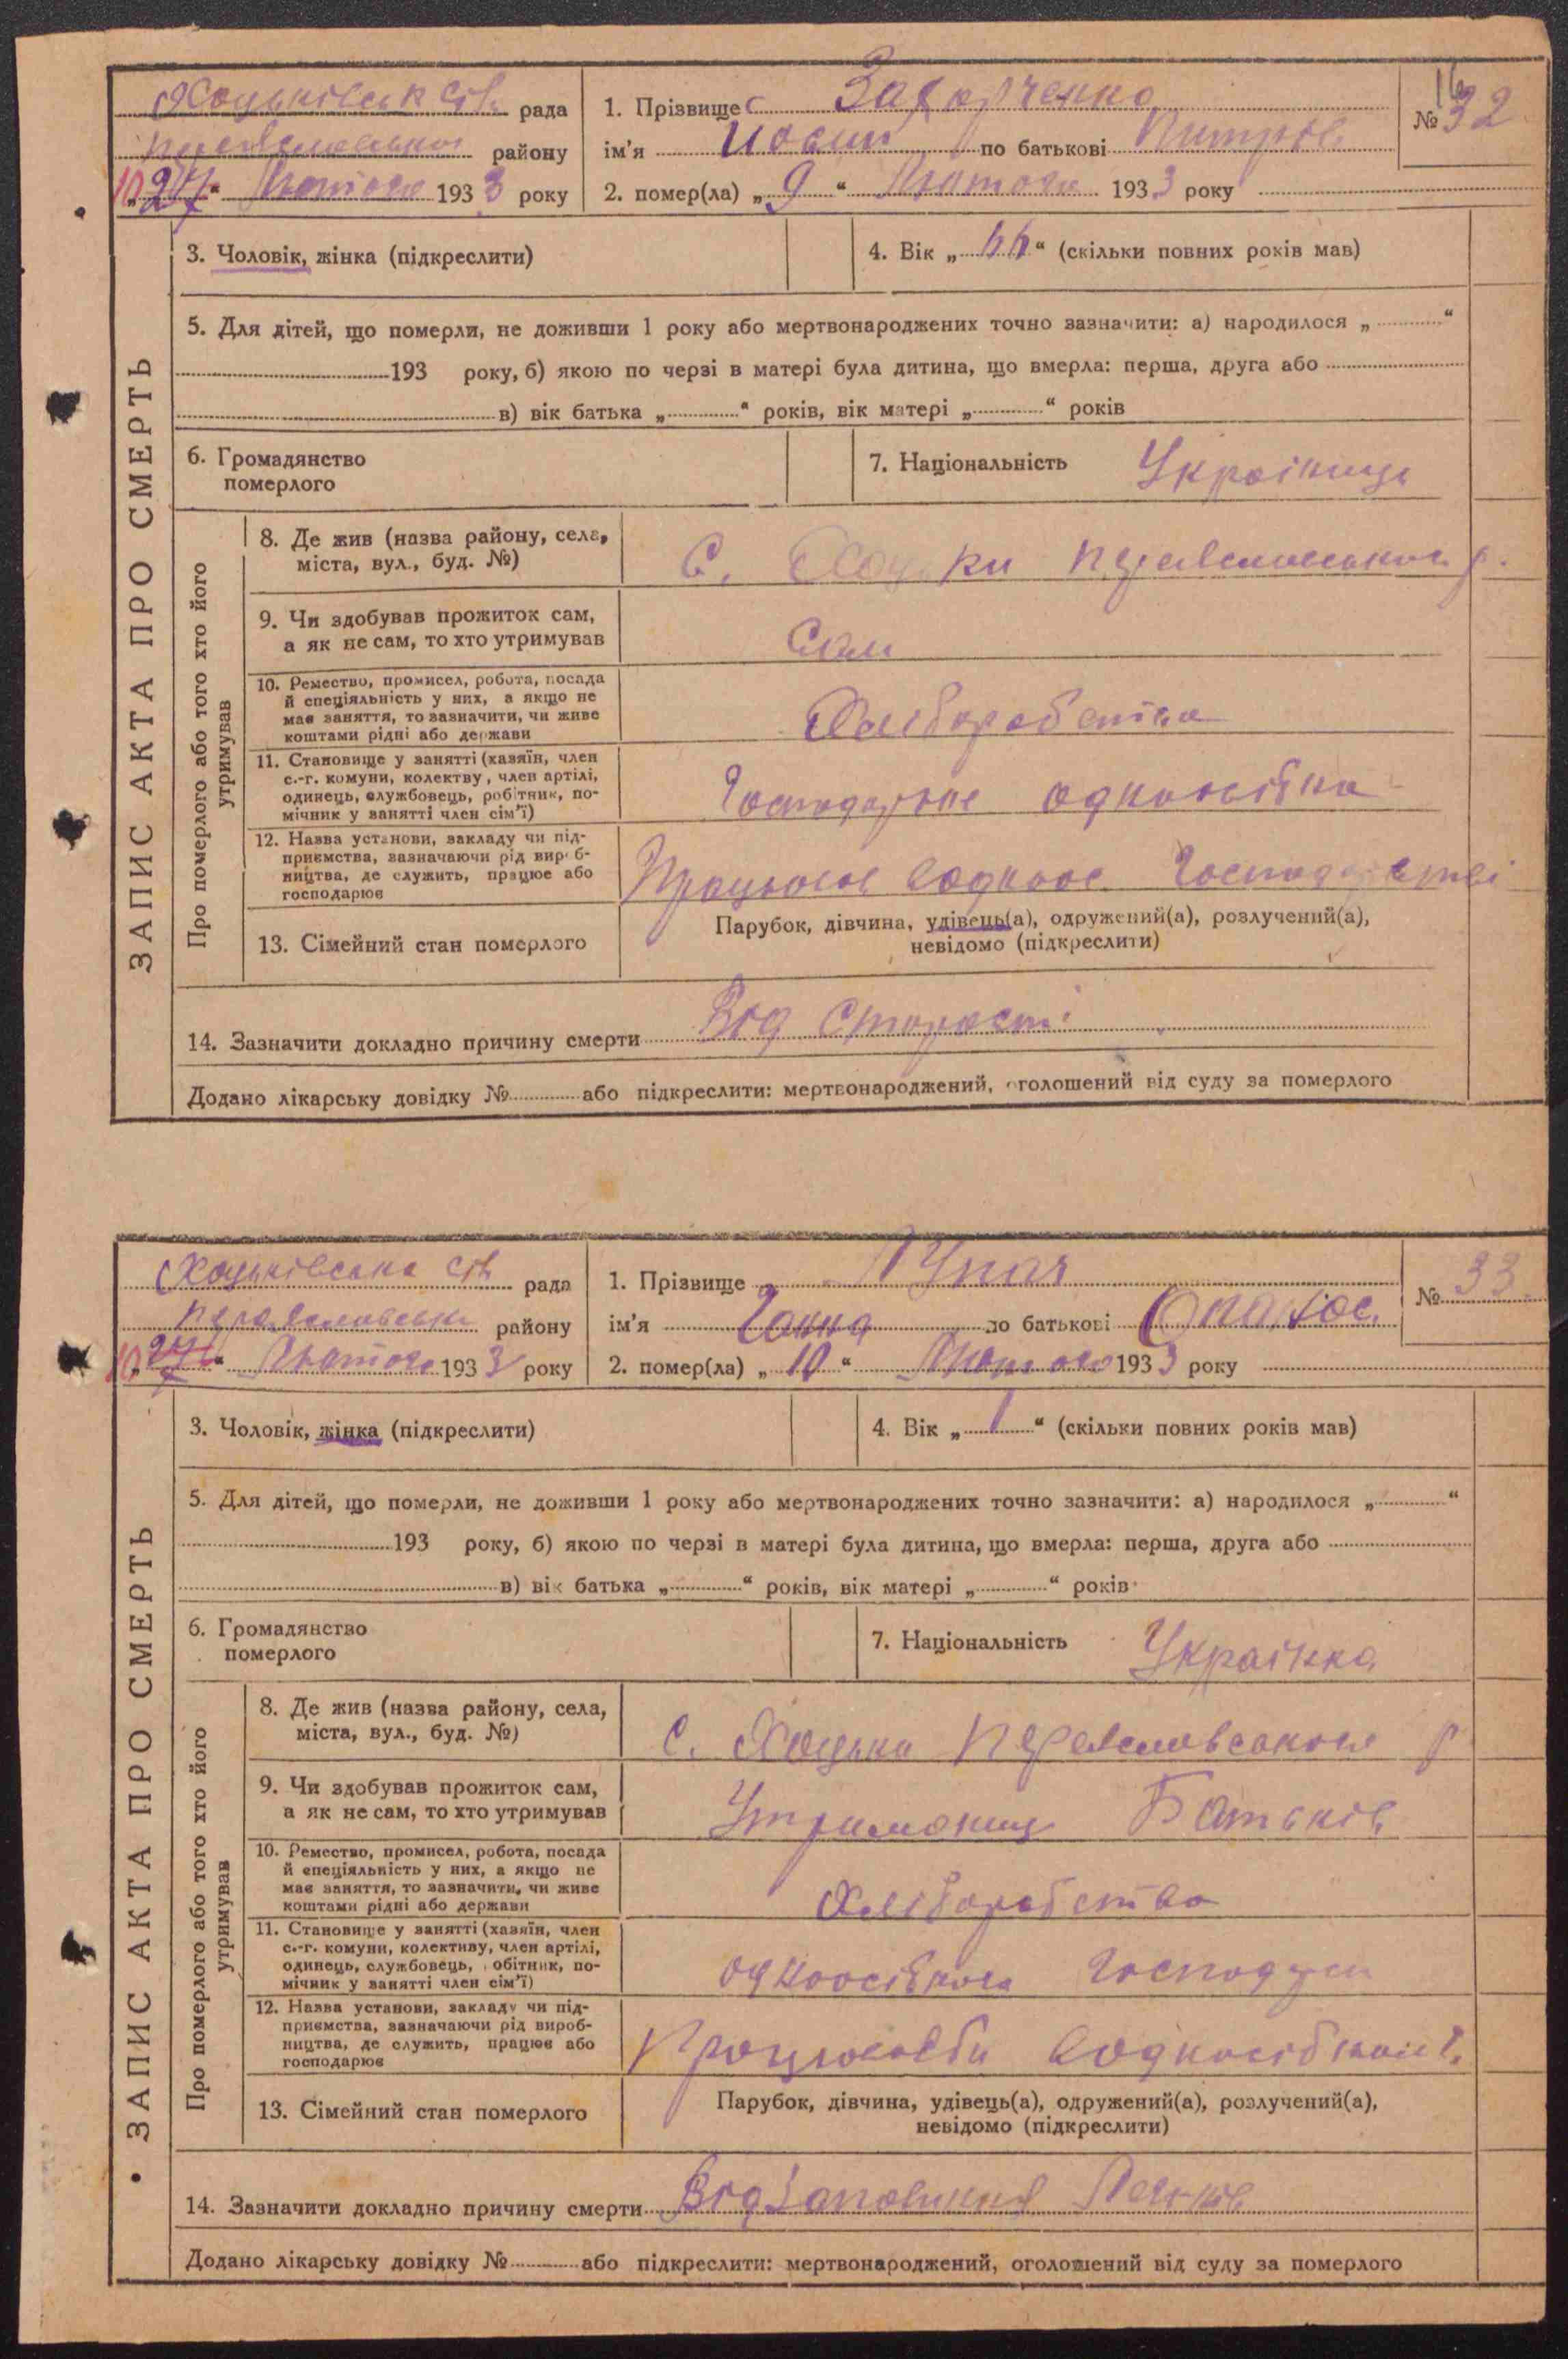 Хоцьківськ сів. рада
Переяславського району
10 „27“ Лютого 1933 року
1. Прізвище Захарченко
ім'я Йосип по батькові Митров.
2. помер(ла) „9“ Лютого 1933 року
16
№ 32
ЗАПИС АКТА ПРО СМЕРТЬ
3. Чоловік, жінка (підкреслити)
4. Вік „“ (скільки повних років мав)
5. Для дітей, що померли, не доживши 1 року або мертвонароджених точно зазначити: а) народилося „“
193 року, б) якою по черзі в матері була дитина, що вмерла: перша, друга або
в) вік батька „“ років, вік матері „“ років
6. Громадянство
померлого
7. Національність Українець
Про померлого або того хто його
утримував
8. Де жив (назва району, села,
міста, вул., буд. №)
С. Хоцьки Переяславського р.
9. Чи здобував прожиток сам,
а як не сам, то хто утримував
Сам
10. Ремество, промисел, робота, посада
й спеціяльність у них, а якщо не
має заняття, то зазначити, чи живе
коштами рідні або держави
Хліборобства
11. Становище у занятті (хазяїн, член
с.-г. комуни, колектву, член артілі,
одинець, службовець, робітник, по-
мічник у занятті член сім'ї)
12. Назва установи, закладу чи під-
приємства, зазначаючи рід вироб-
ництва, де служить, працює або
господарює
13. Сімейний стан померлого
Парубок, дівчина, удівець(а), одружений(а), розлучений(а),
невідомо (підкреслити)
14. Зазначити докладно причину смерти Від Старості
Додано лікарську довідку № або підкреслити: мертвонароджений, оголошений від суду за померлого
Хоцьківська сів. рада
Переяславськ району
10 „27“ Лютого 1933 року
1. Прізвище Лупач
ім'я Ганна по батькові Опанас.
2. помер(ла) „10“ Лютого 1933 року
№ 33.
ЗАПИС АКТА ПРО СМЕРТЬ
3. Чоловік, жінка (підкреслити)
4. Вік „1“ (скільки повних років мав)
5. Для дітей, що померли, не доживши 1 року або мертвонароджених точно зазначити: а) народилося „“
193 року, б) якою по черзі в матері була дитина, що вмерла: перша, друга або
в) вік батька „“ років, вік матері „“ років
6. Громадянство
померлого
7. Національність Українка
Про померлого або того хто його
утримував
8. Де жив (назва району, села,
міста, вул., буд. №)
С. Хоцьки Переяславського р
9. Чи здобував прожиток сам,
а як не сам, то хто утримував
Утриманець Батьків
10. Ремество, промисел, робота, посада
й спеціяльність у них, а якщо не
має заняття, то зазначити, чи живе
коштами рідні або держави
Хліборобство
11. Становище у занятті (хазяїн, член
с.-г. комуни, колективу, член артілі,
одинець, службовець, робітник, по-
мічник у занятті член сім'ї)
12. Назва установи, закладу чи під-
приємства, зазначаючи рід вироб-
ництва, де служить, працює або
господарює
13. Сімейний стан померлого
Парубок, дівчина, удівець(а), одружений(а), розлучений(а),
невідомо (підкреслити)
14. Зазначити докладно причину смерти Від Запалення Легенів
Додано лікарську довідку № або підкреслити: мертвонароджений, оголошений від суду за померлого